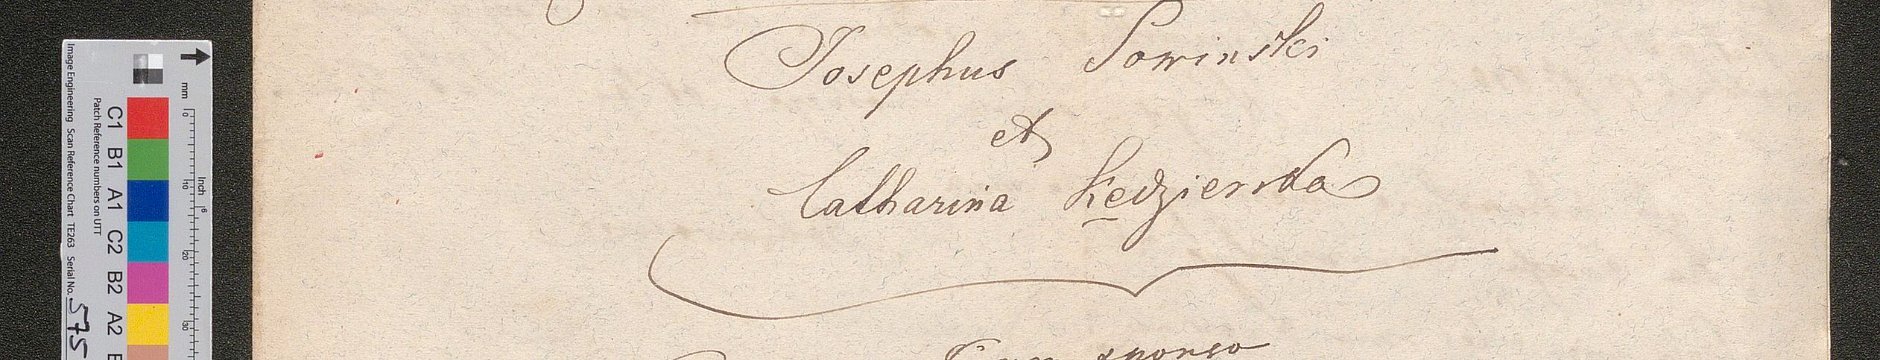 Josephus Sowinski
et
Catharina Kędzierska
sponso
Image Engineering Scan Reference Chart TE263 Serial No. 575
Patch Reference numbers on UTT
C1 B1 A1 C2 B2 A2
mm
0 10 20 30
Inch